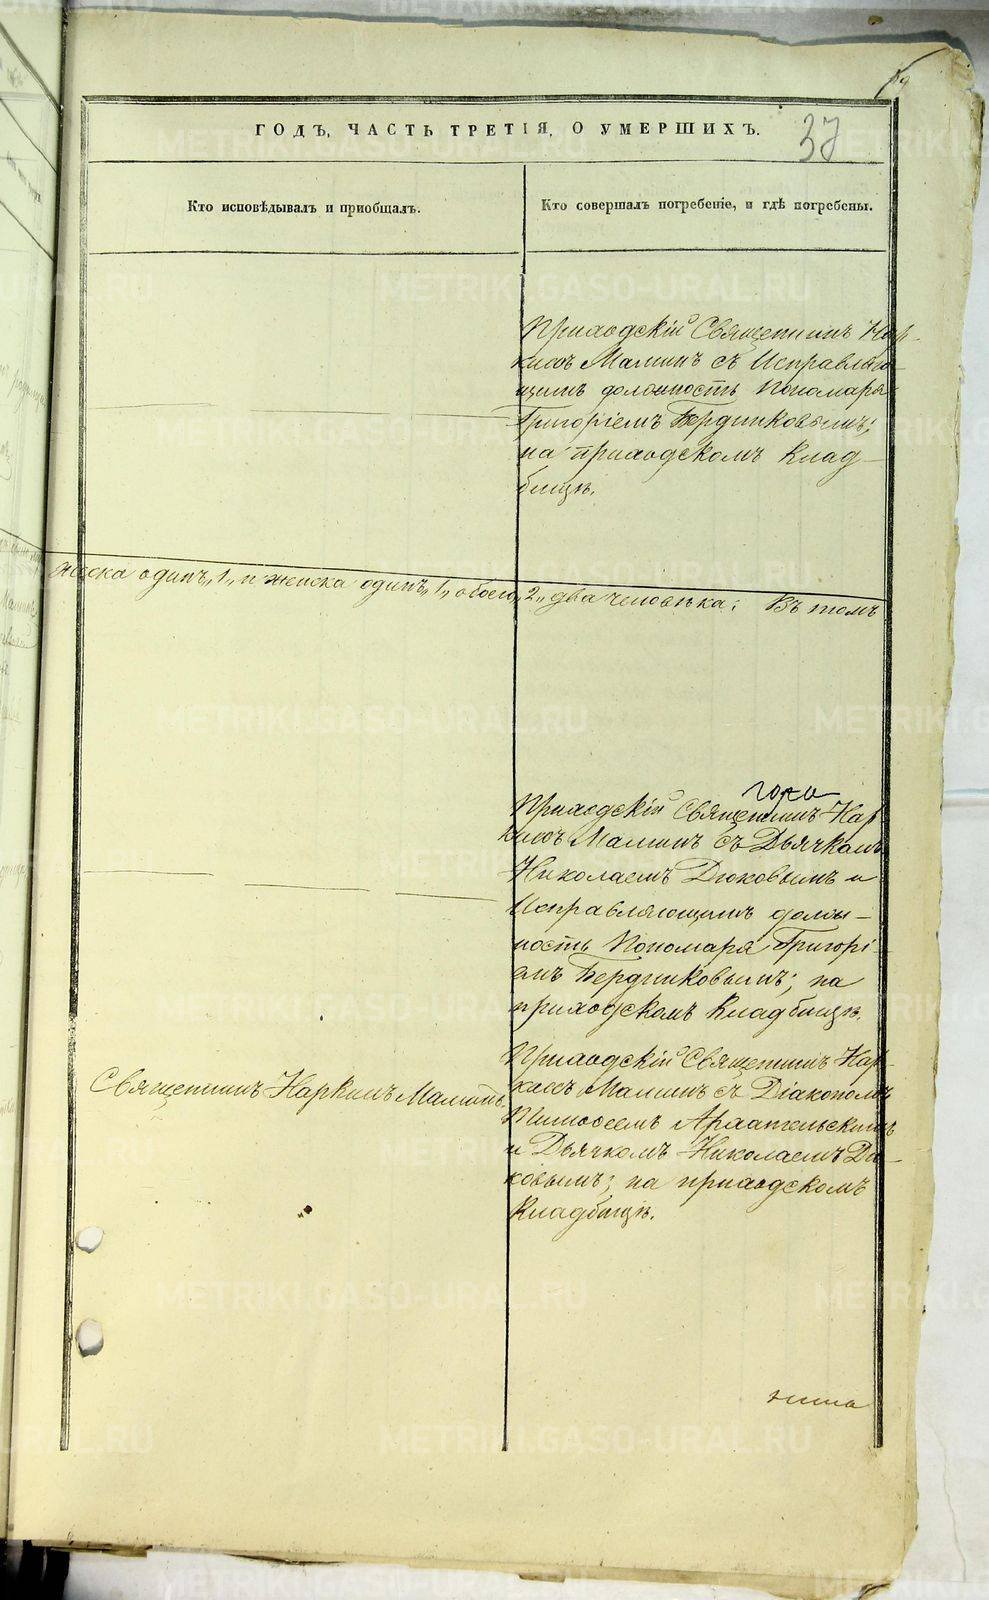 ГОДЪ, ЧАСТЬ ТРЕТІЯ, О УМЕРШИХЪ.
37
Кто исповѣдывалъ и пріобщалъ.
Кто совершалъ погребеніе, и гдѣ погребены.
Приходскій Священникъ Нар-
кисъ Маминъ съ Исправляю-
щимъ должность Пономаря
Григоріемъ Бердниковымъ;
на приходскомъ клад-
бищѣ.
жеска одинъ „1„ и женска одинъ „1„ обоего „2„ два человѣка; Въ томъ
года
Приходскій Священникъ Нар-
кисъ Маминъ съ Дьячкомъ
Николаемъ Дюковымъ и
Исправляющимъ долж-
ность Пономаря Григорі-
емъ Бердниковымъ; на
приходскомъ кладбищѣ.
Священникъ Наркисъ Маминъ.
Приходскій Священникъ Нар-
кисъ Маминъ съ Діакономъ
и Дьячкомъ Николаемъ Дю-
ковымъ; на приходскомъ
кладбищѣ.
METRIKI.GASO-URAL.RU